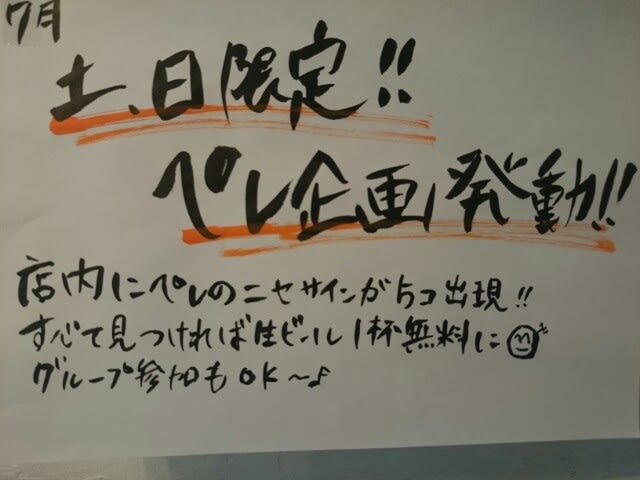 7月
土、日限定!!
ペレ企画発動!!
店内にペレのニセサインが5コ出現!!
すべて見つければ生ビール1杯無料に
グループ参加もOK〜♪